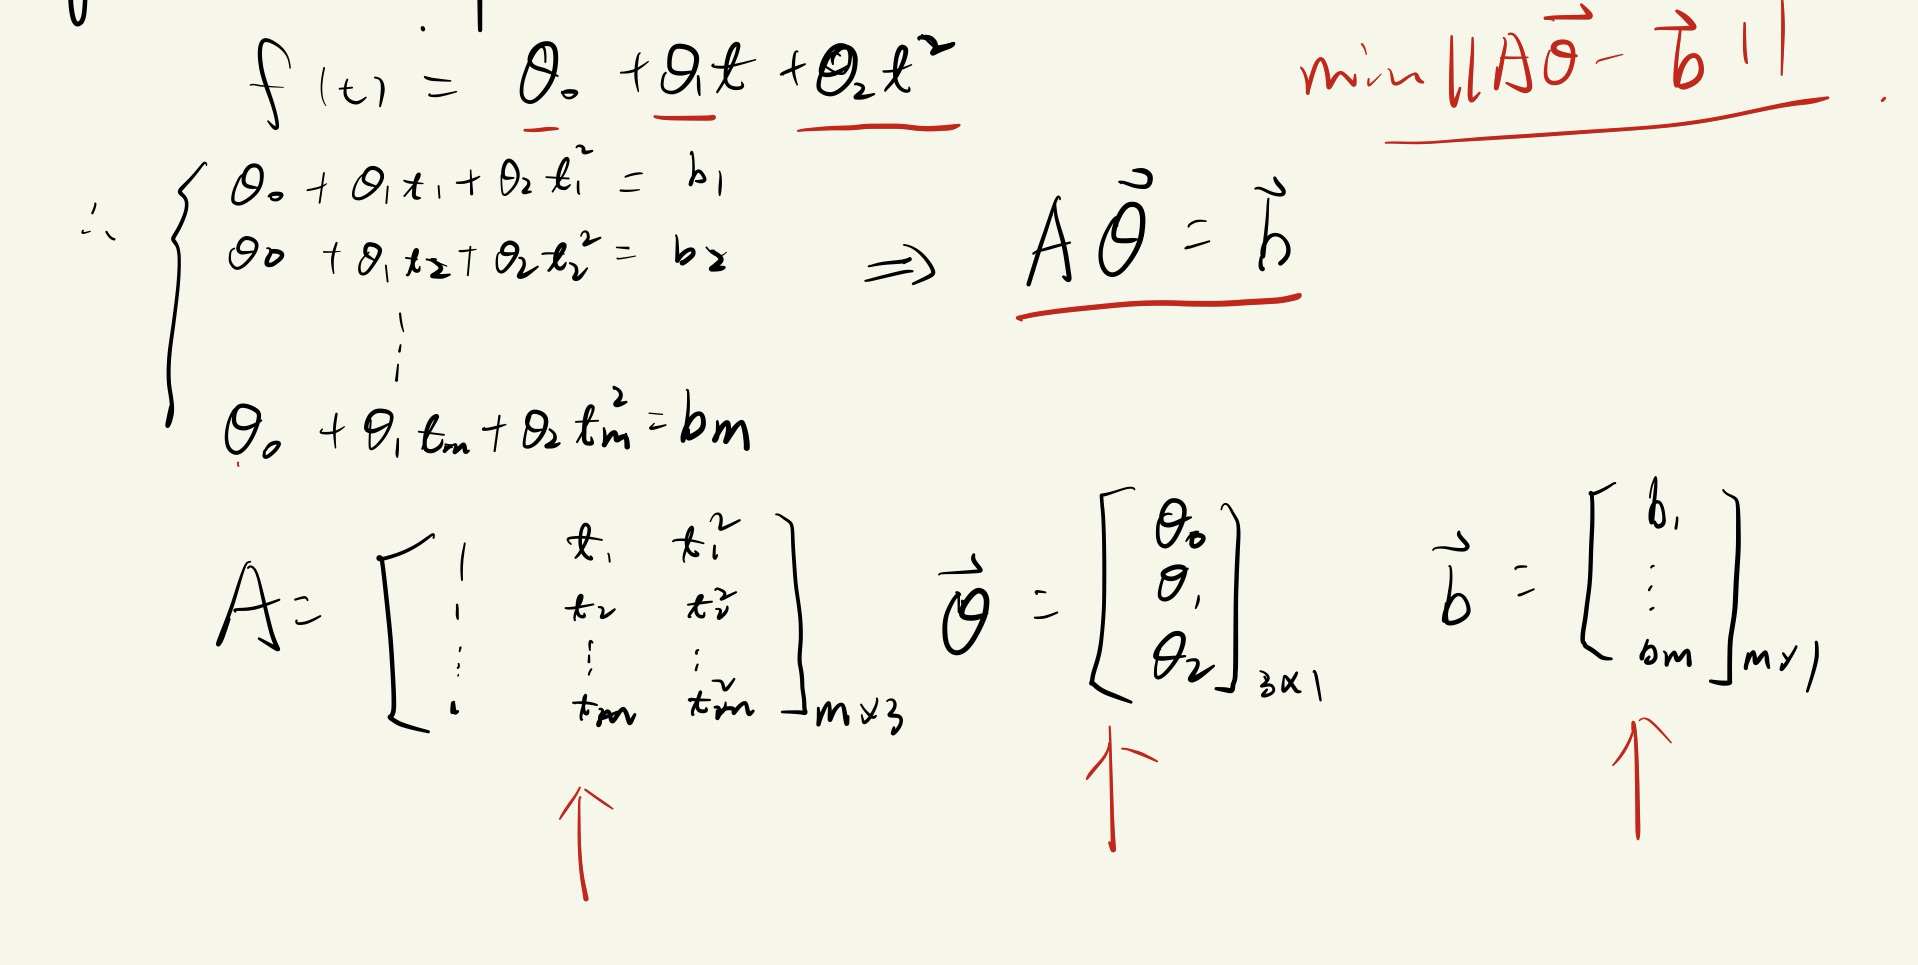 f(t) = θ₀ + θ₁t + θ₂t²
min ||Aθ⃗ - b⃗||
∴ { θ₀ + θ₁t₁ + θ₂t₁² = b₁
θ₀ + θ₁t₂ + θ₂t₂² = b₂
⋮
θ₀ + θ₁tₘ + θ₂tₘ² = bₘ
⇒ Aθ⃗ = b⃗
A = [ 1 t₁ t₁²
1 t₂ t₂²
⋮ ⋮ ⋮
1 tₘ tₘ² ]ₘₓ₃
θ⃗ = [ θ₀
θ₁
θ₂ ]₃ₓ₁
b⃗ = [ b₁
⋮
bₘ ]ₘₓ₁